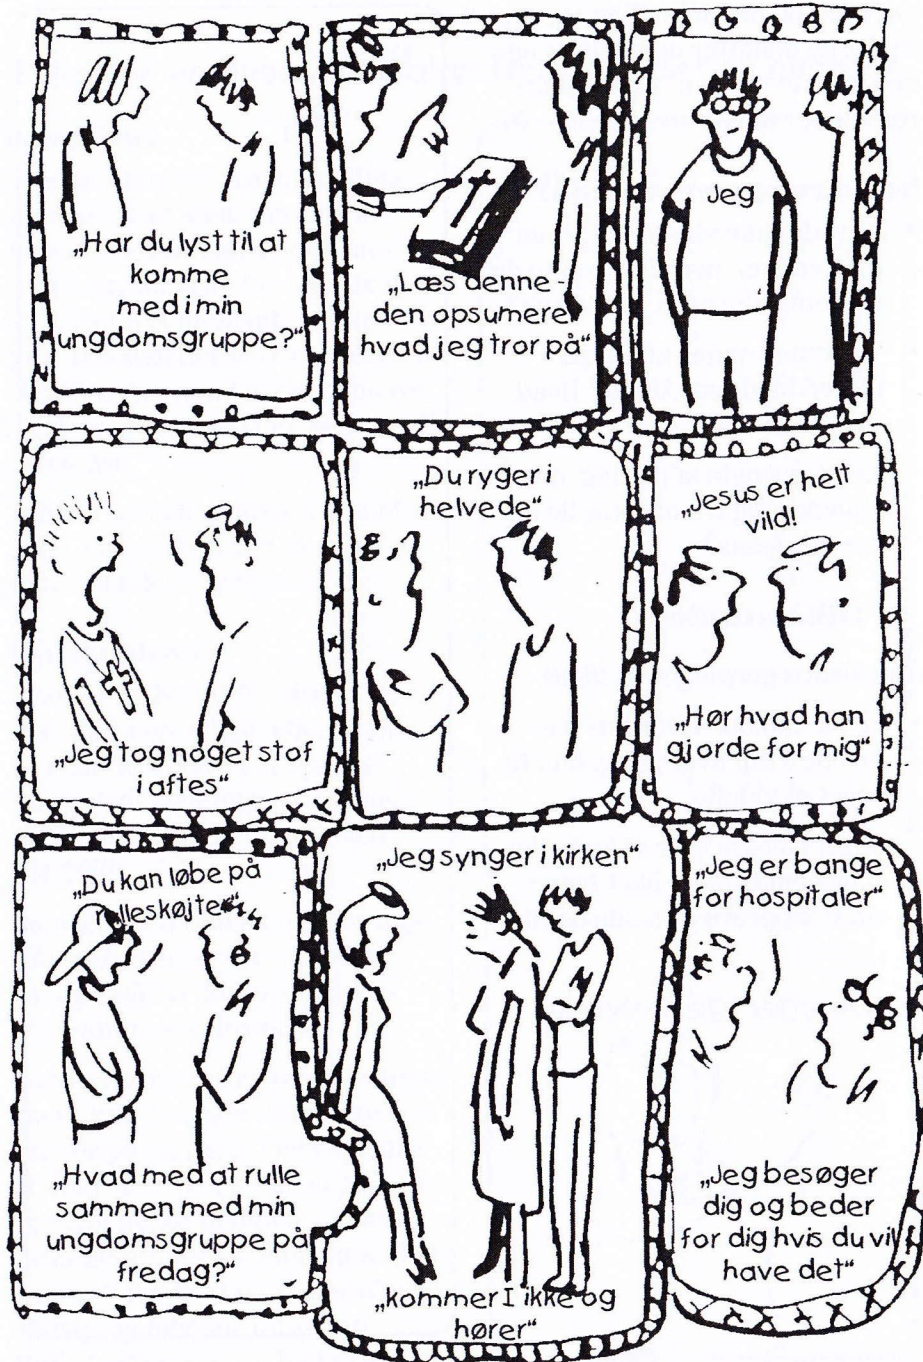 „Har du lyst til at
komme
med i min
ungdomsgruppe?“
„Læs denne -
den opsumerer
hvad jeg tror på“
Jeg
„Jeg tog noget stof
i aftes“
„Du ryger i
helvede“
„Jesus er helt
vild!
„Hør hvad han
gjorde for mig“
„Du kan løbe på
rulleskøjter“
„Hvad med at rulle
sammen med min
ungdomsgruppe på
fredag?“
„Jeg synger i kirken“
„kommer I ikke og
hører“
„Jeg er bange
for hospitaler“
„Jeg besøger
dig og beder
for dig hvis du vil
have det“